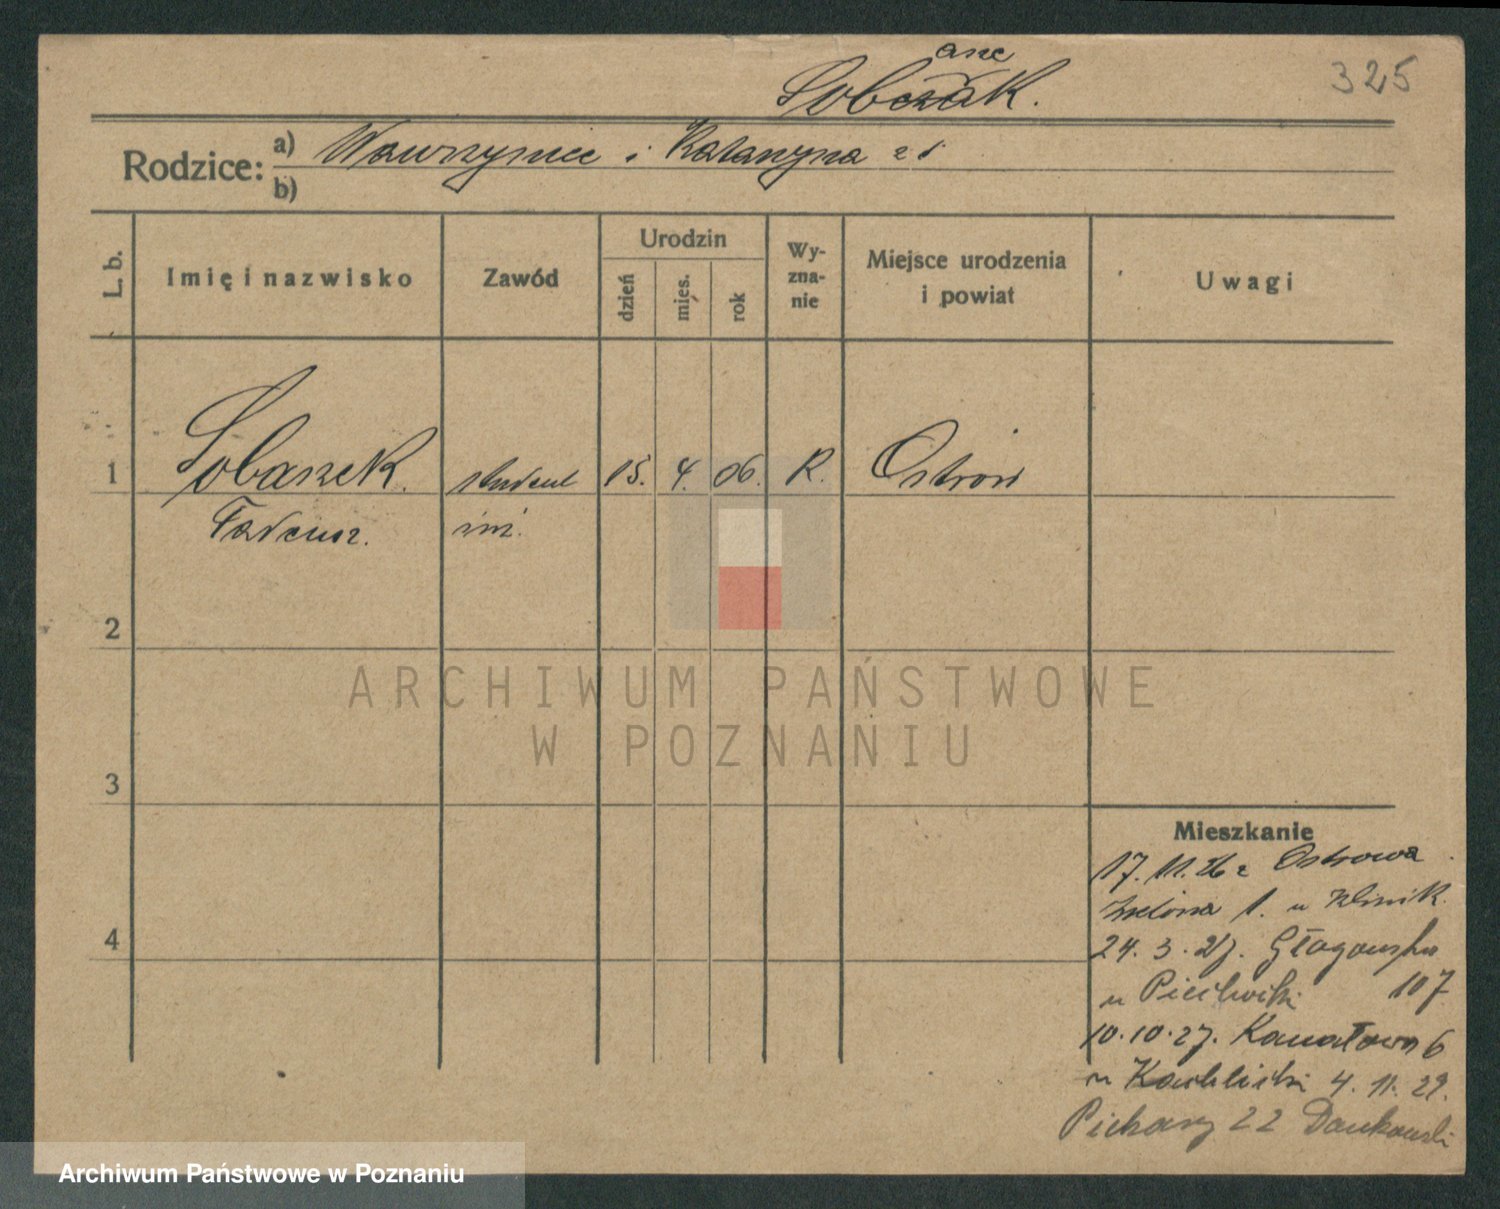 325
asze
Sobczak.
Rodzice: a) Wawrzyniec i Katarzyna z d
b)
L. b.
Imię i nazwisko
Zawód
Urodzin
dzień
mies.
rok
Wy-
zna-
nie
Miejsce urodzenia
i powiat
Uwagi
1 Sobaszek student 15. 4. 06. R. Ostrów
Tadeusz.
2
3
4
Mieszkanie
17. 11. 26 z Ostrowa
1. u Klinik.
24. 3. 27. Głogowska
u 107
10. 10. 27. Kanałowa 6
u 4. 11. 29.
Piekary 22 Dankowski
ARCHIWUM PAŃSTWOWE
W POZNANIU
Archiwum Państwowe w Poznaniu